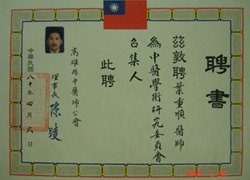 聘書
茲敦聘葉重順醫師
為中醫學術研究委員會
召集人
此聘
高雄縣中醫師公會
理事長 陳
中華民國八十年 月 日